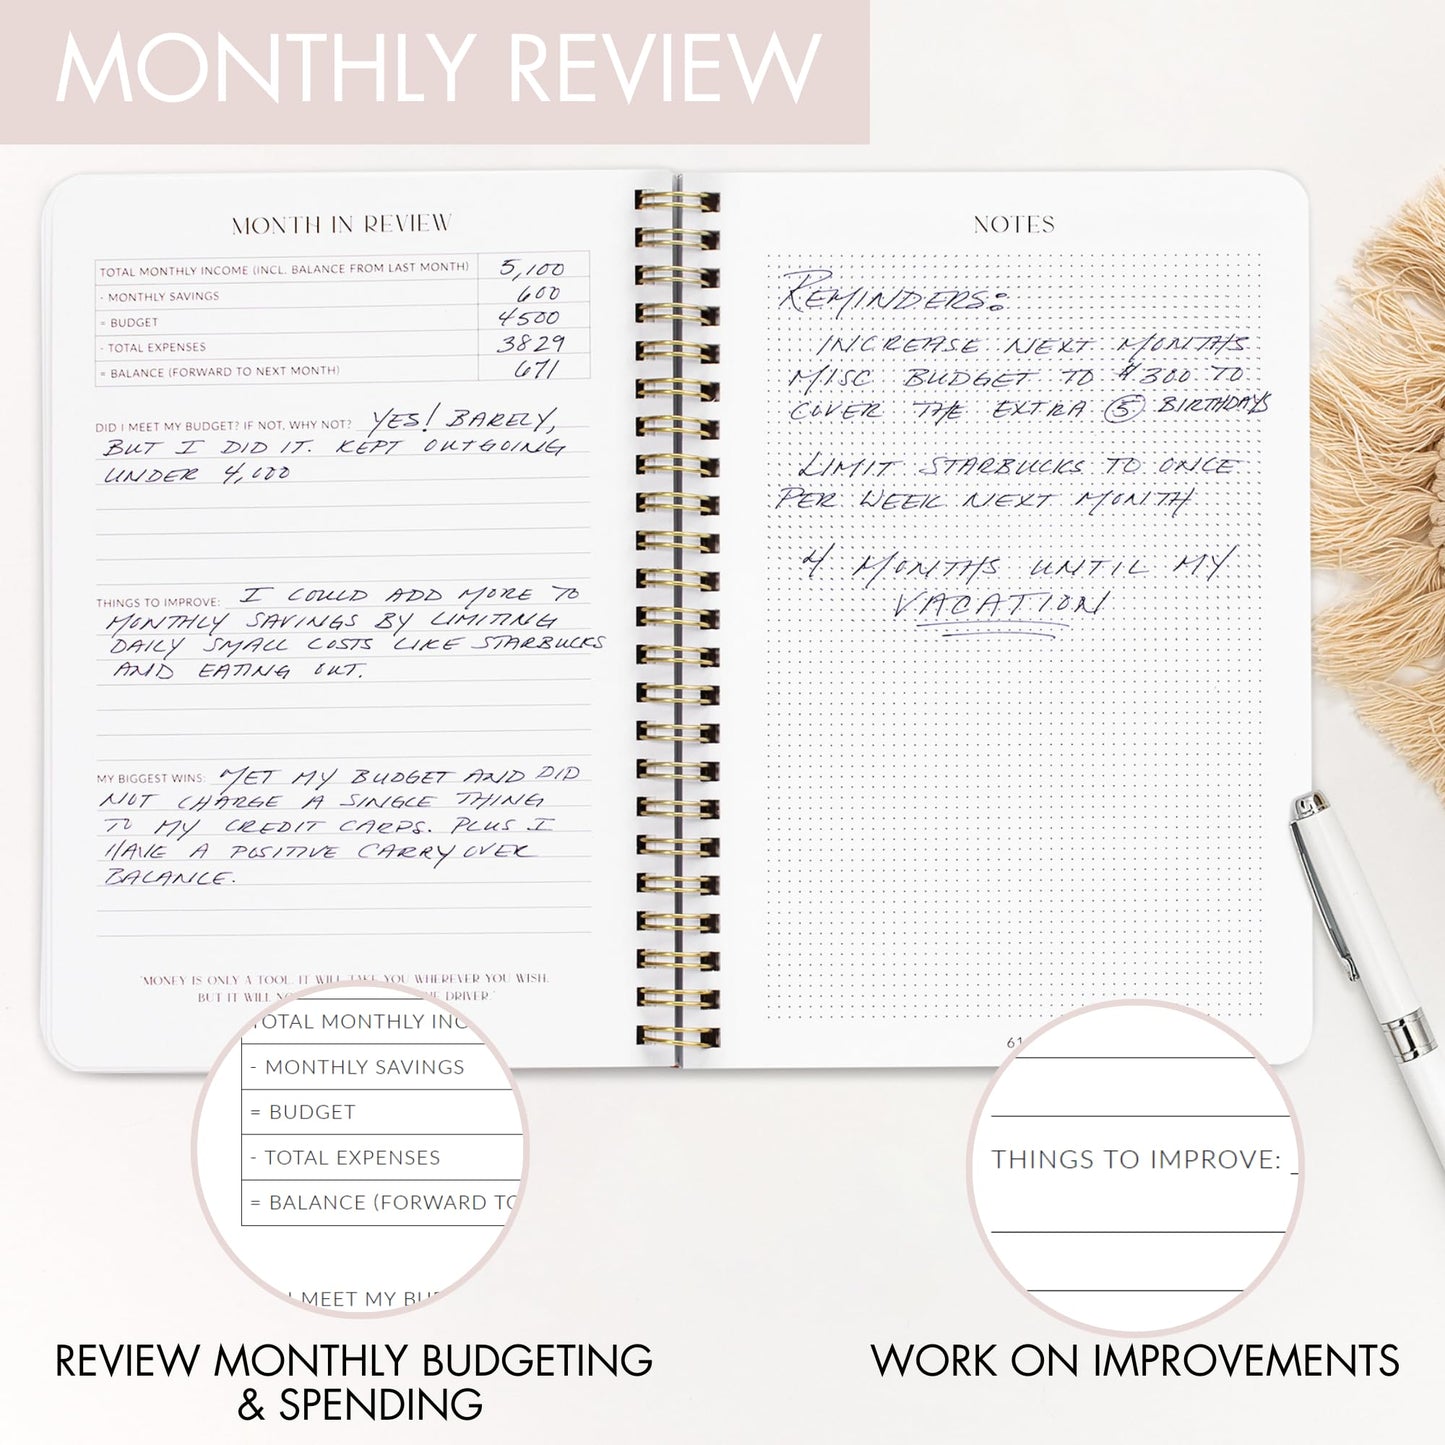 MONTHLY REVIEW
MONTH IN REVIEW
TOTAL MONTHLY INCOME (INCL. BALANCE FROM LAST MONTH) 5,100
- MONTHLY SAVINGS 600
= BUDGET 4500
- TOTAL EXPENSES 3829
= BALANCE (FORWARD TO NEXT MONTH) 671
DID I MEET MY BUDGET? IF NOT, WHY NOT? YES! BARELY,
BUT I DID IT. KEPT OUTGOING
UNDER 4,000
THINGS TO IMPROVE: I COULD ADD MORE TO
MONTHLY SAVINGS BY LIMITING
DAILY SMALL COSTS LIKE STARBUCKS
AND EATING OUT.
MY BIGGEST WINS: MET MY BUDGET AND DID
NOT CHARGE A SINGLE THING
TO MY CREDIT CARDS. PLUS I
HAVE A POSITIVE CARRY OVER
BALANCE.
"MONEY IS ONLY A TOOL. IT WILL TAKE YOU WHEREVER YOU WISH,
BUT IT WILL DRIVER."
NOTES
REMINDERS:
INCREASE NEXT MONTHS
MISC BUDGET TO $300 TO
COVER THE EXTRA 5 BIRTHDAYS
LIMIT STARBUCKS TO ONCE
PER WEEK NEXT MONTH
4 MONTHS UNTIL MY
VACATION
61
TOTAL MONTHLY INC
- MONTHLY SAVINGS
= BUDGET
- TOTAL EXPENSES
= BALANCE (FORWARD TO
I MEET MY BU
THINGS TO IMPROVE:
REVIEW MONTHLY BUDGETING
& SPENDING
WORK ON IMPROVEMENTS